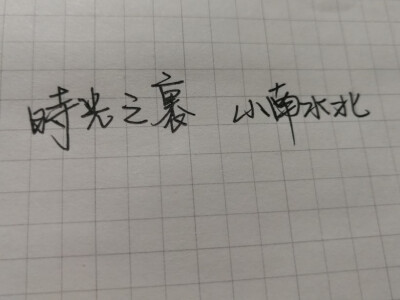 時光之裏 小南水北